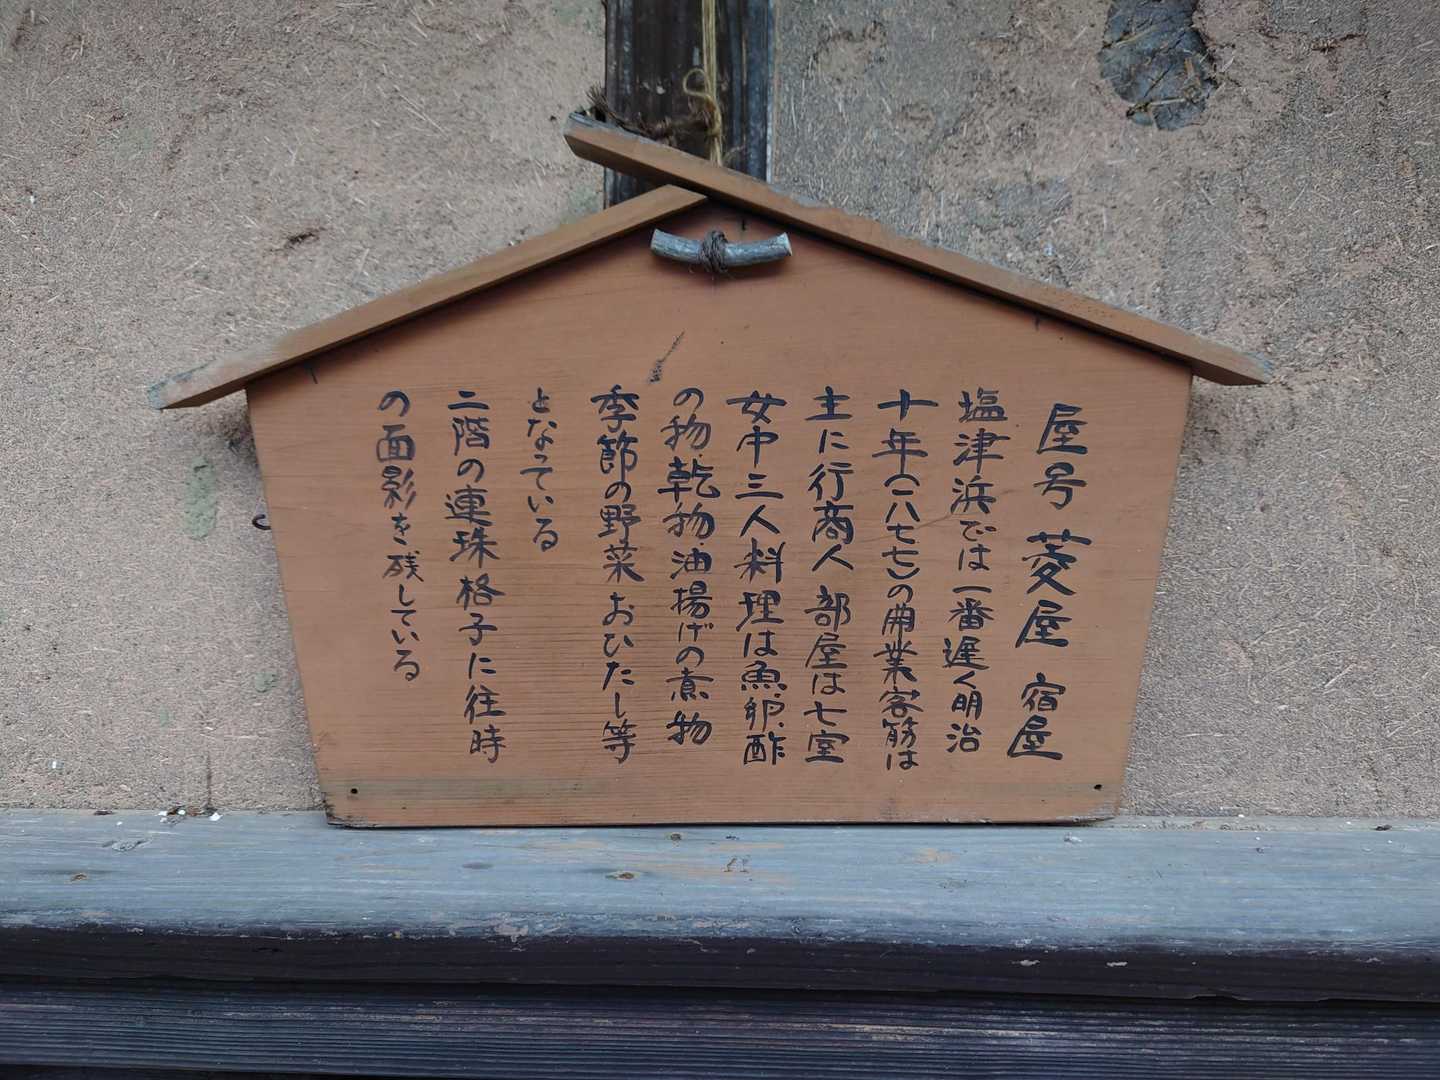 屋号 菱屋 宿屋
塩津浜では一番遅く明治
十年(一八七七)の開業客筋は
主に行商人 部屋は七室
女中三人料理は魚、卵、酢
の物、乾物、油揚げの煮物
季節の野菜おひたし等
となっている
二階の連珠格子に往時
の面影を残している